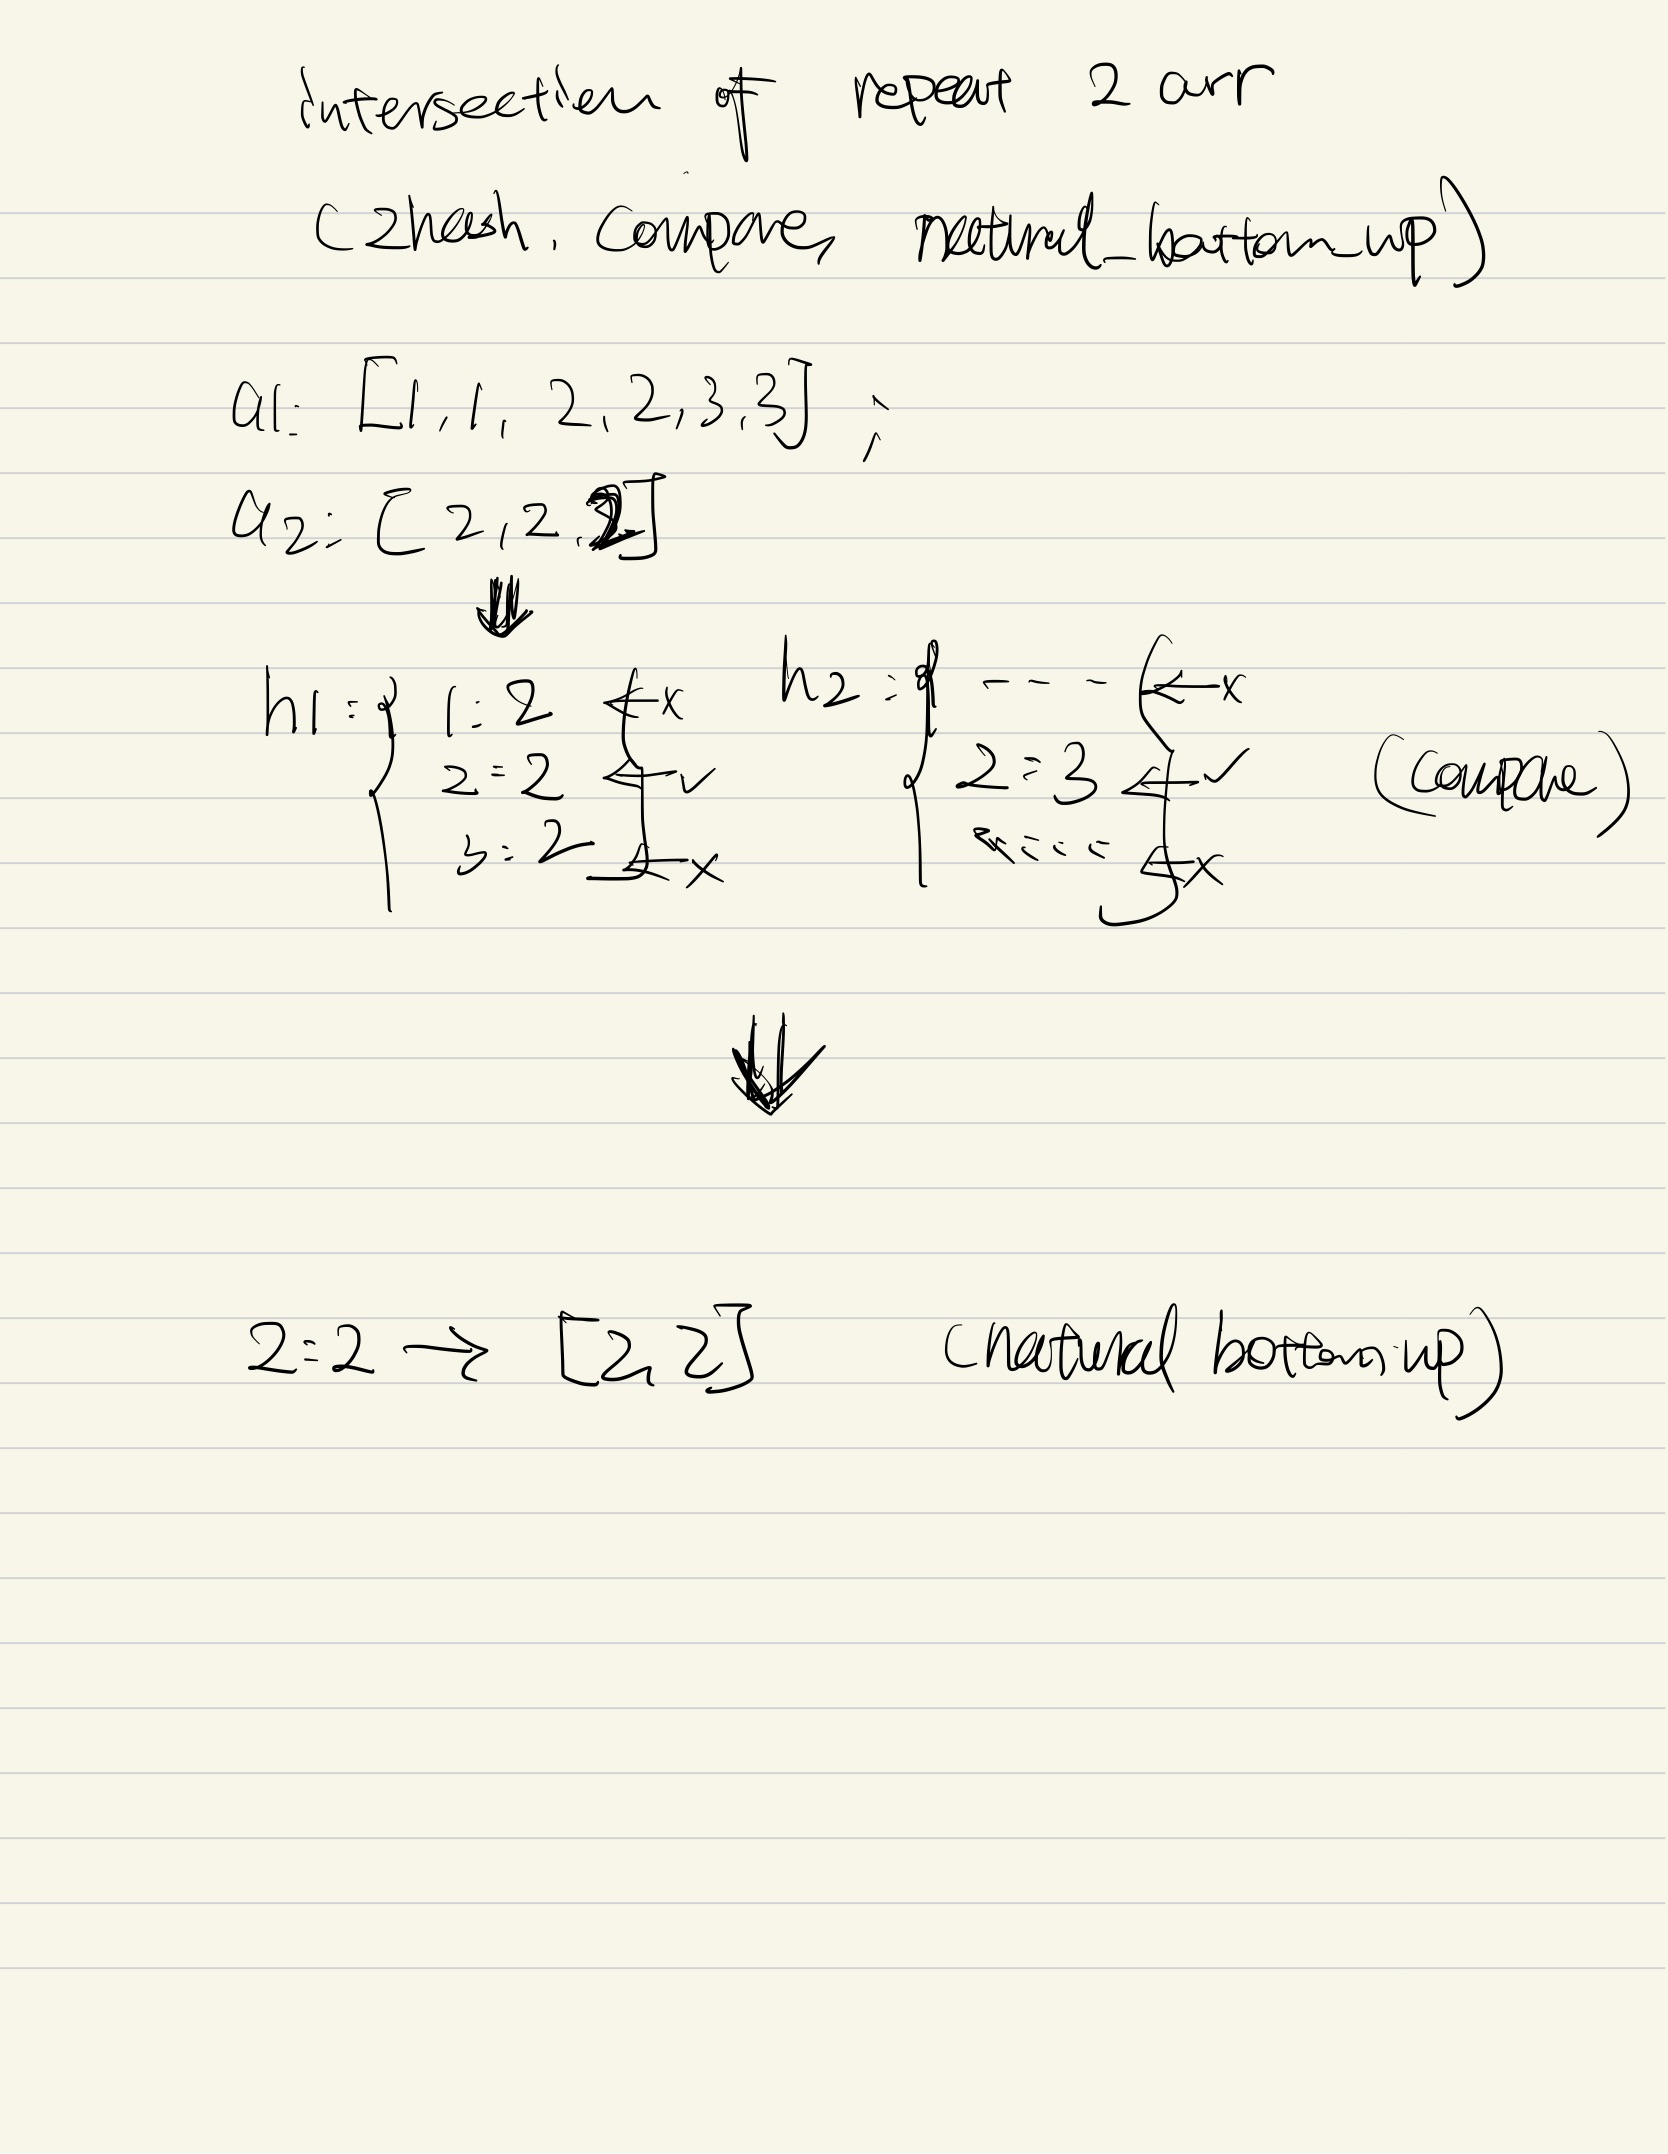 intersection of repeat 2 arr
(2hash, compare, natural_bottom_up)
a1: [1, 1, 2, 2, 3, 3] ;
a2: [2, 2, 2]
h1: { 1: 2 ← x h2: { - - - - ← x
2: 2 ← ✓ 2: 3 ← ✓ (compare)
3: 2 } ← x } ← x
2:2 → [2, 2] (natural bottom-up)